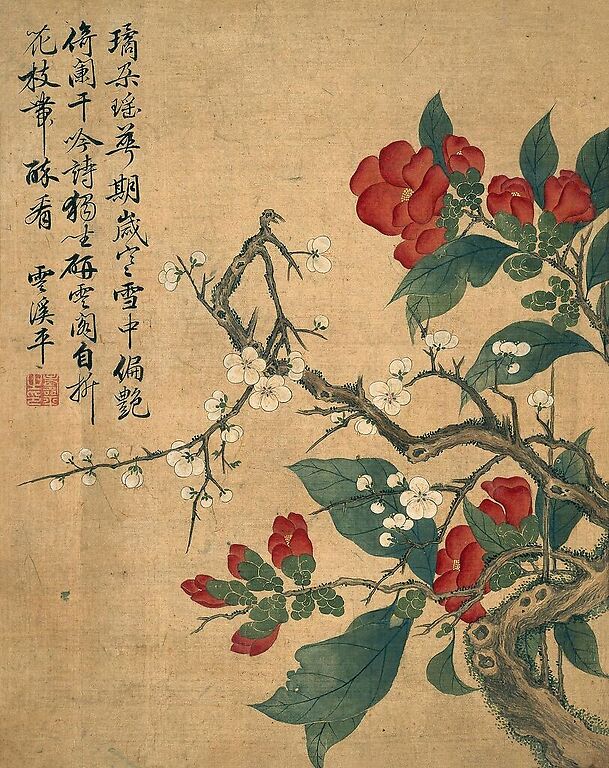 璚朵瑤華期歲寒雪中偏艷
倚闌干吟詩獨坐研雲閣自折
花枝帶醉看 雲溪平